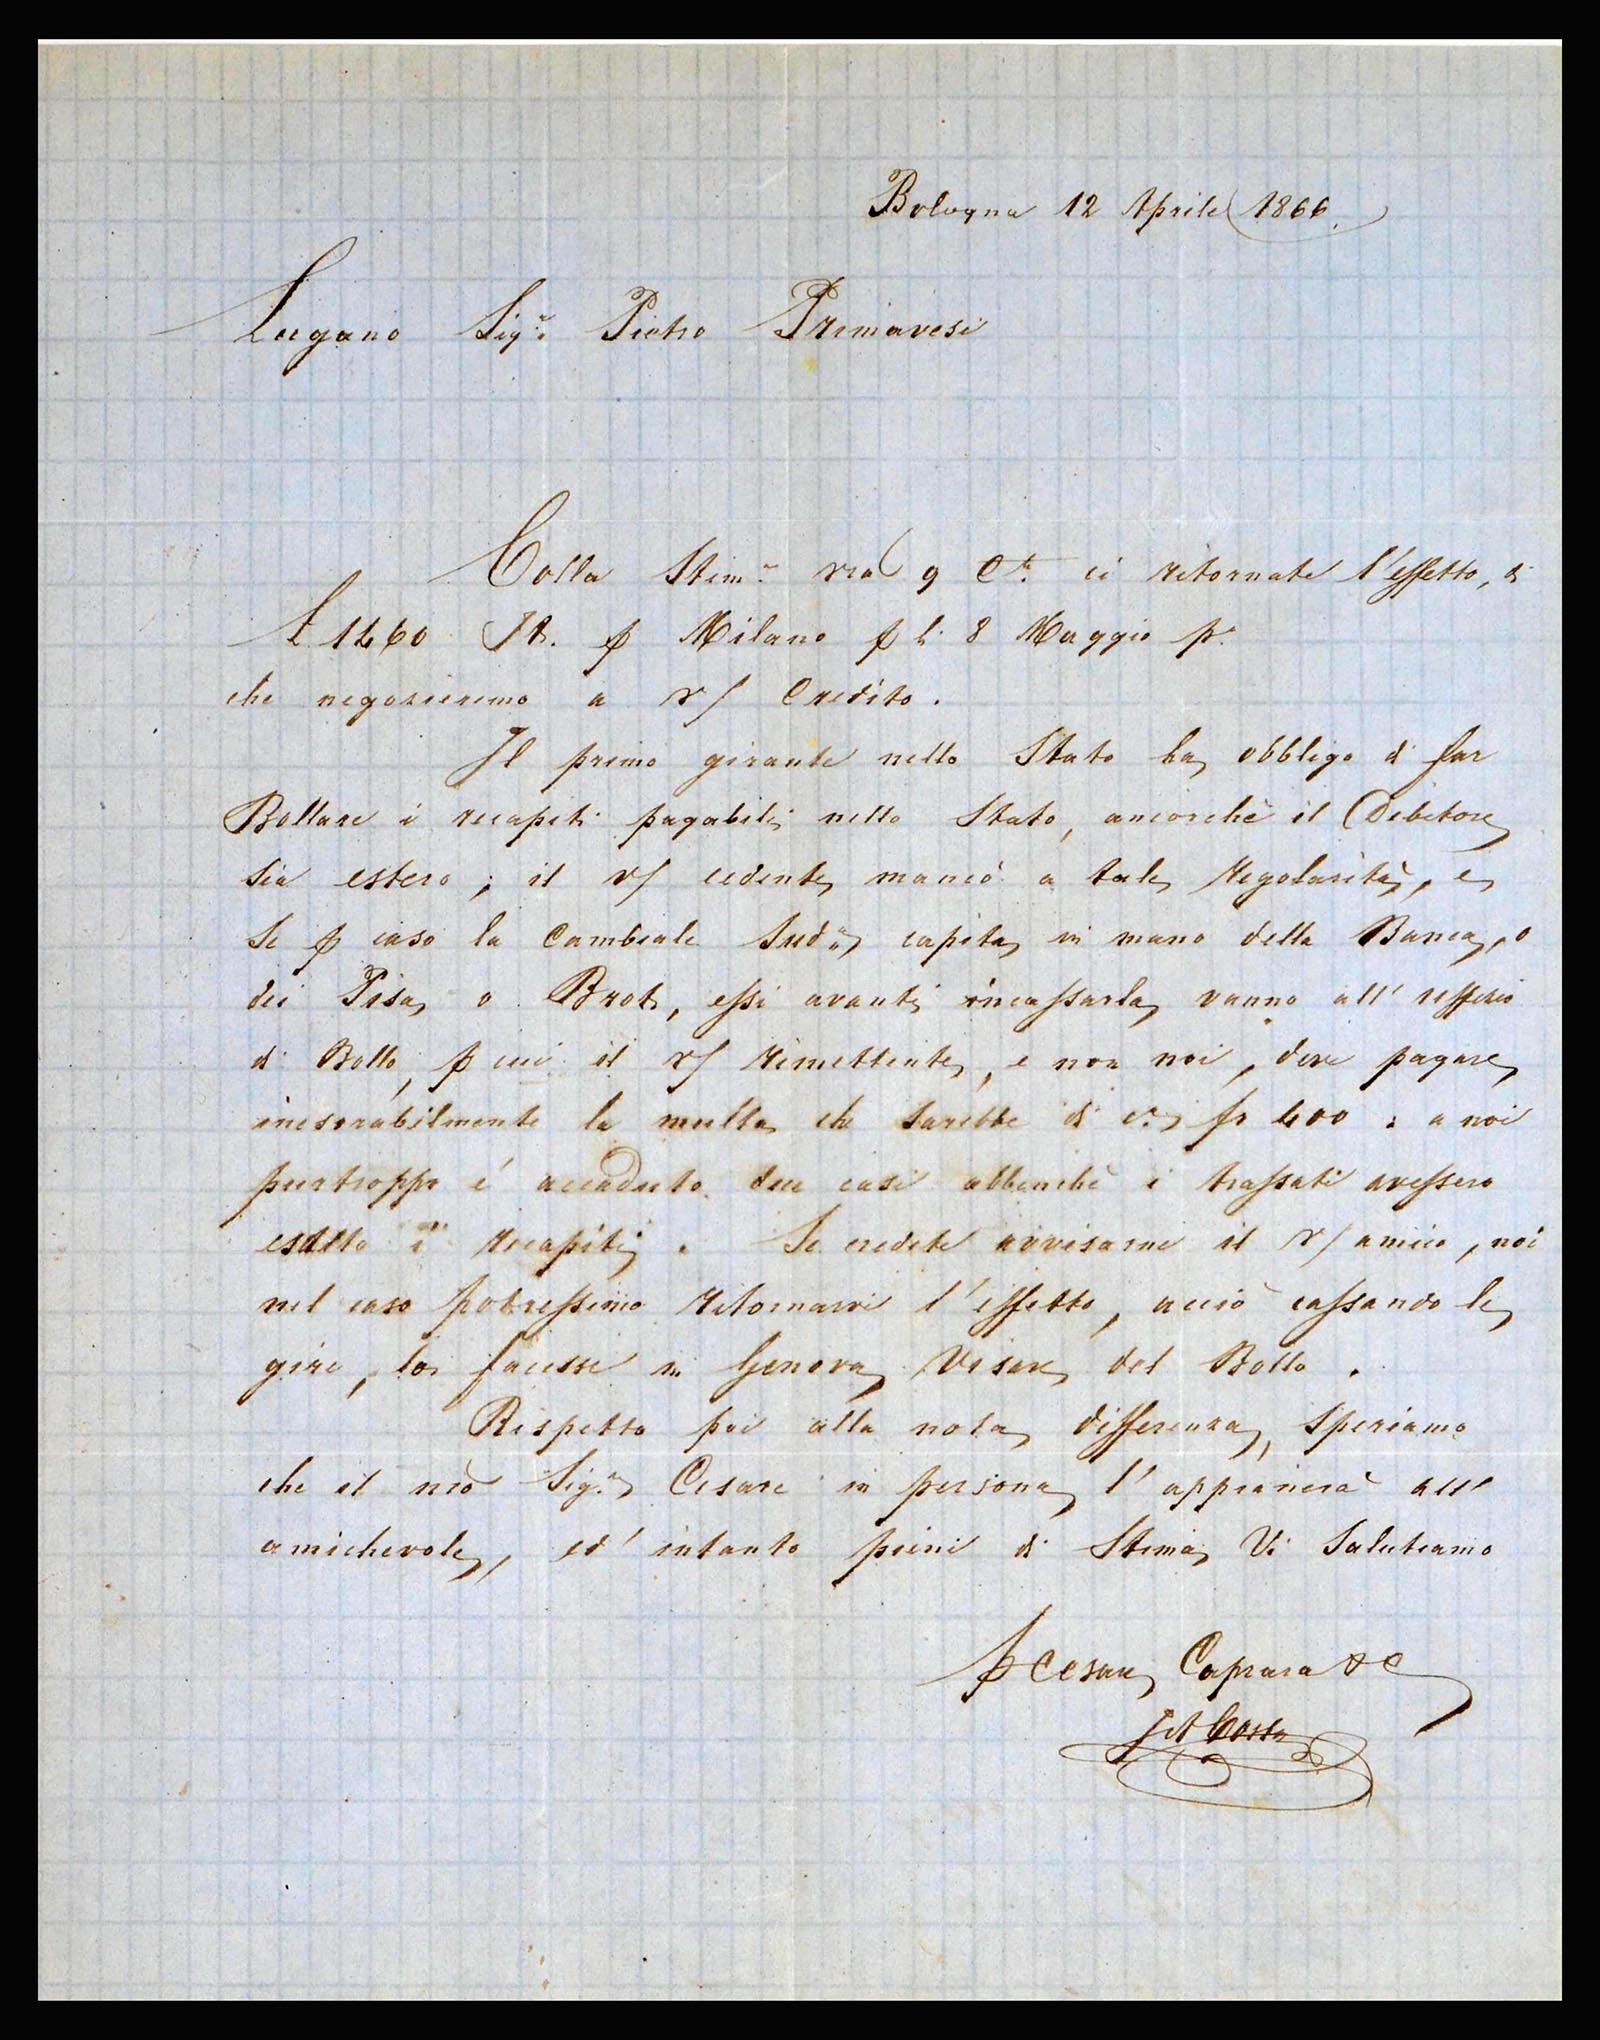 Bologna 12 Aprile 1866.
Lugano Sigr. Pietro Primavesi
Colla Stima. vra 9 Cte. ci ritornate l'effetto, di
£ 1460 It. p Milano p li 8 Maggio po.
che negozieremo a v/ Credito.
Il primo girante nello Stato ha obbligo di far
Bollare i recapiti pagabili nello Stato, ancorchè il Debitore
sia estero; il v/ cedente mancò a tale regolarità, e
se p caso la Cambiale sudda. capita in mano della Banca, o
dei Pisa, o Brot, essi avanti incassarla, vanno all' uffizio
di Bollo, p cui il v/ rimettente, e non noi, deve pagare
inesorabilmente la multa che sarebbe di ca. fr 400 : a noi
purtroppo é accaduto due casi abbenchè i trassati avessero
i recapiti. Se credete avvisarne il v/ amico, noi
nel caso potressimo ritornarvi l'effetto, acciò cassando le
gire, lo facesse in Genova Visare del Bollo.
Rispetto poi alla nota differenza, speriamo
che il nro Sigr. Cesare in persona l'appianerà all'
amichevole, ed' intanto pieni di Stima Vi Salutiamo
p Cesare Caprara & C